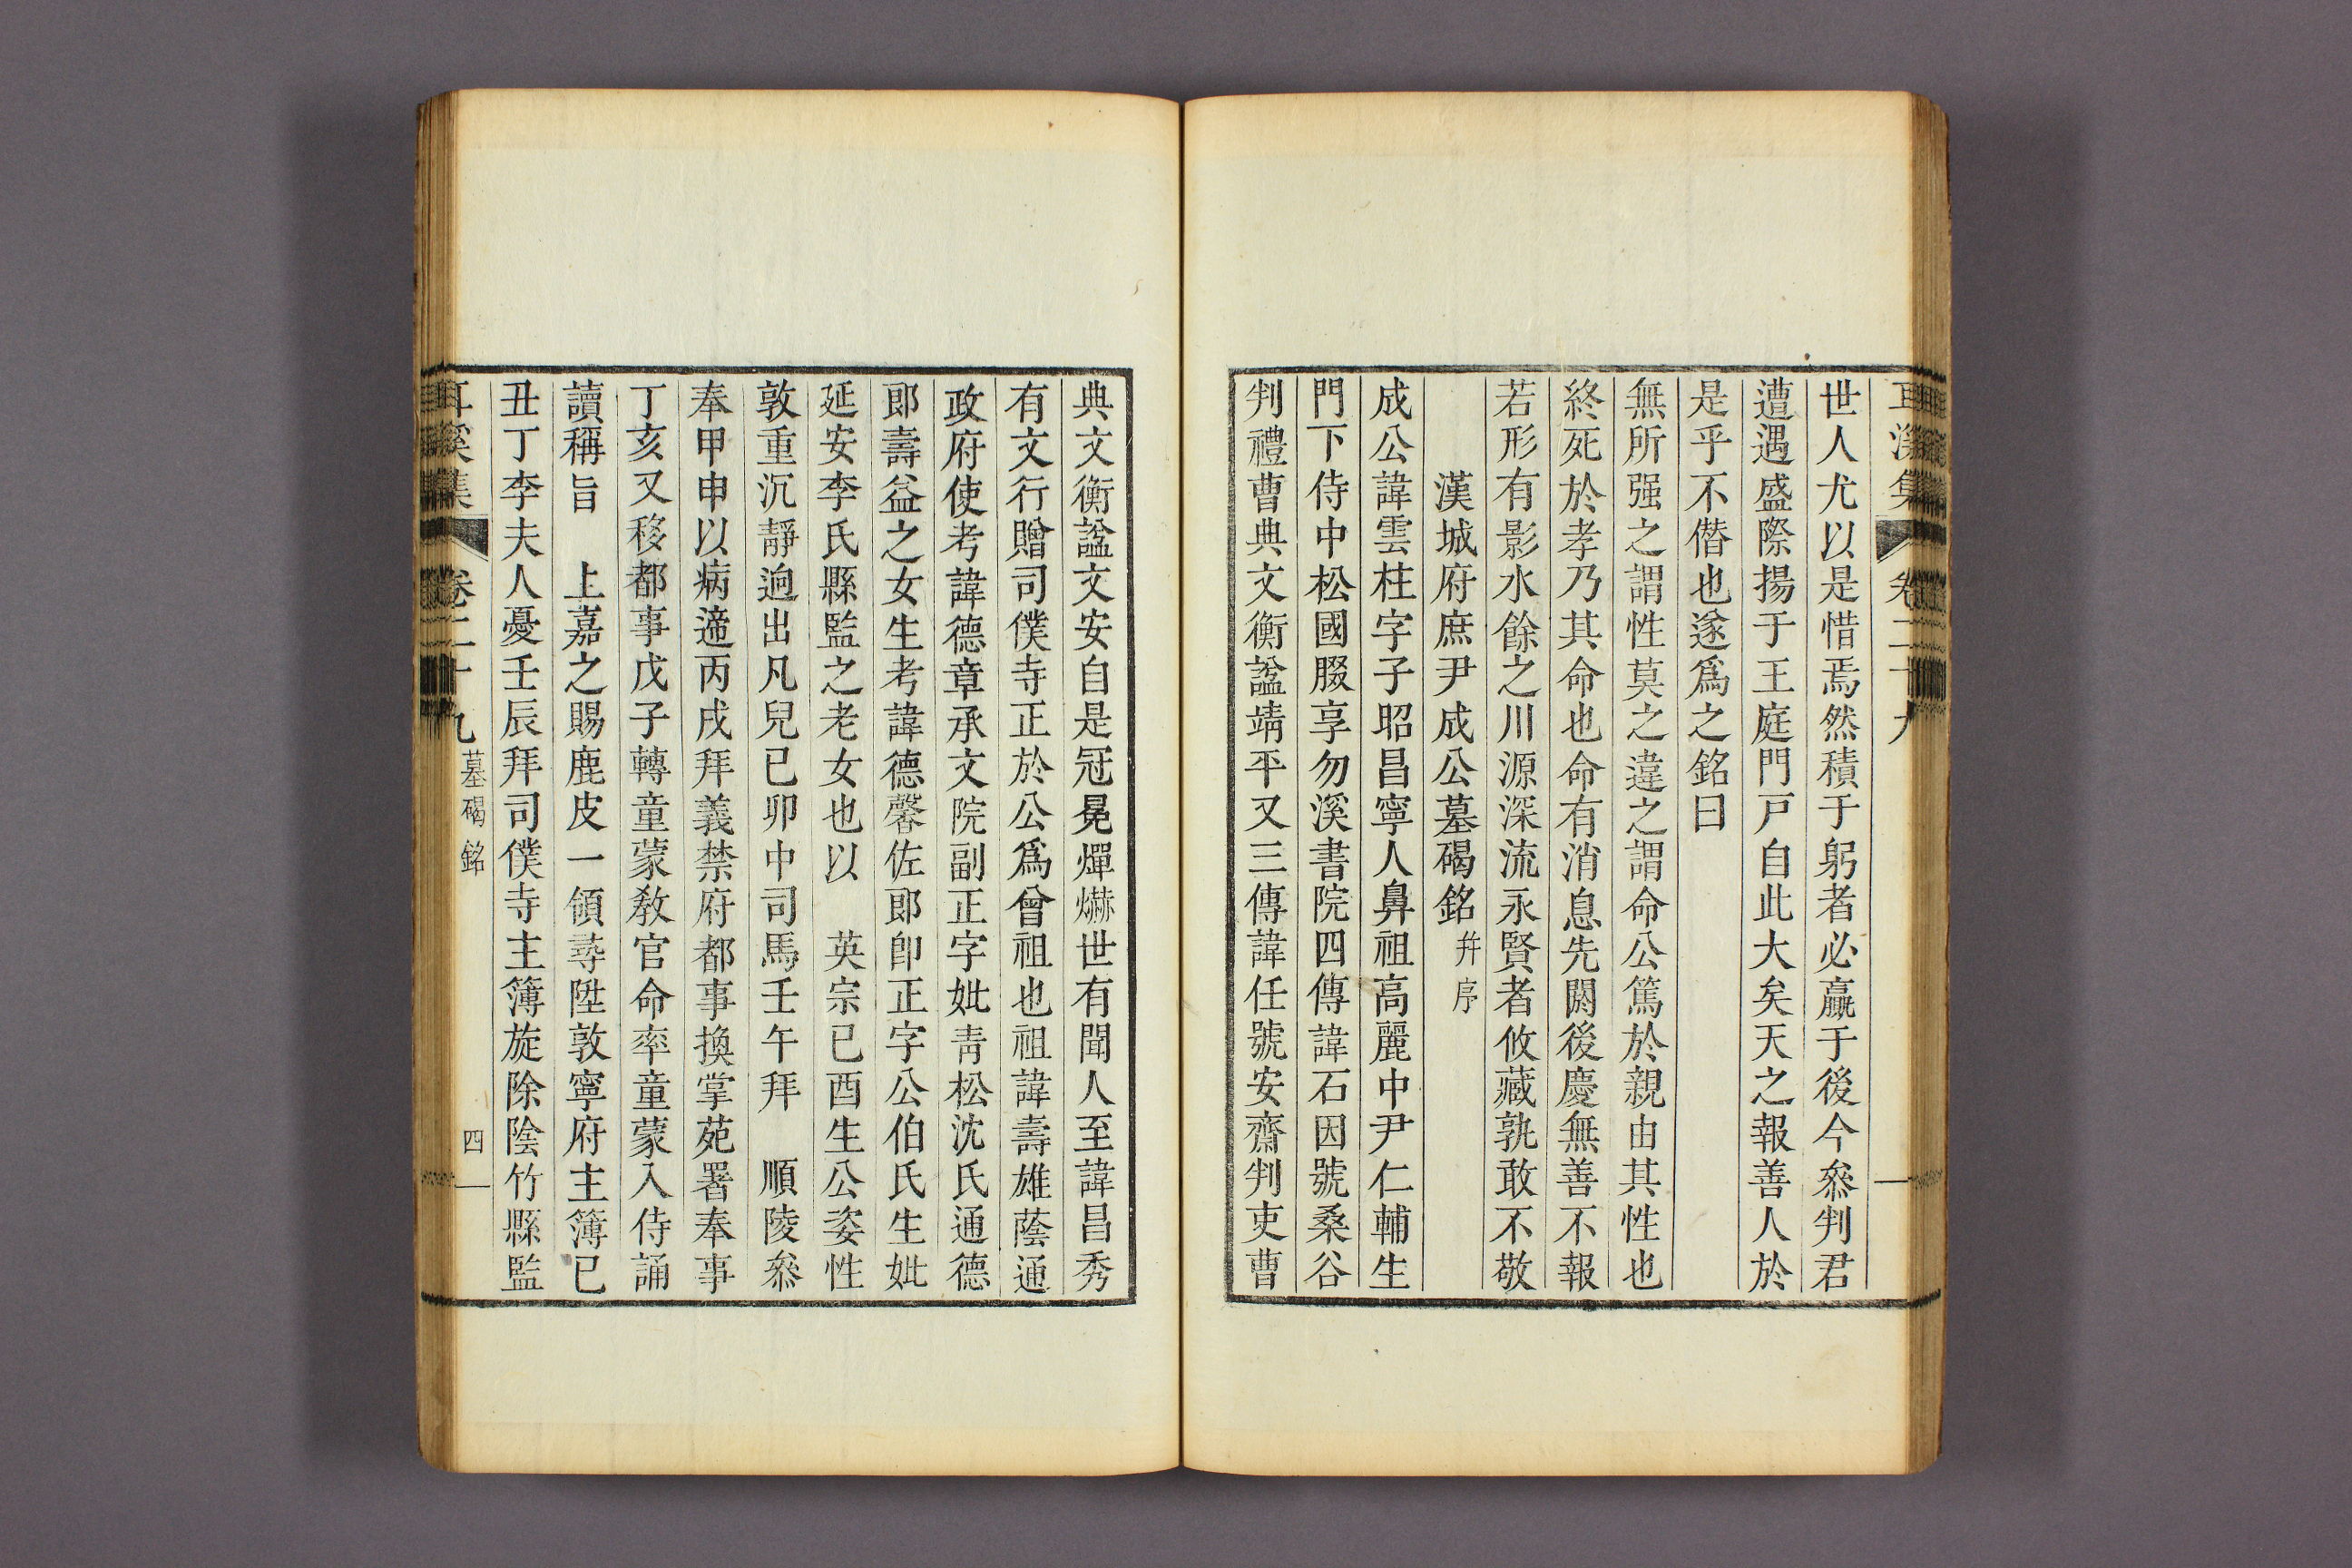 耳溪集 卷二十九
世人尤以是惜焉然積于躬者必贏于後今叅判君
遭遇盛際揚于王庭門戸自此大矣天之報善人於
是乎不僭也遂爲之銘曰
無所强之謂性莫之違之謂命公篤於親由其性也
終死於孝乃其命也命有消息先閼後慶無善不報
若形有影水餘之川源深流永賢者攸藏孰敢不敬
漢城府庶尹成公墓碣銘 幷序
成公諱雲柱字子昭昌寧人鼻祖高麗中尹仁輔生
門下侍中松國腏享勿溪書院四傳諱石因號桑谷
判禮曹典文衡諡靖平又三傳諱任號安齋判吏曹
典文衡諡文安自是冠冕燀爀世有聞人至諱昌秀
有文行贈司僕寺正於公爲曾祖也祖諱壽雄蔭通
政府使考諱德章承文院副正字妣靑松沈氏通德
郞壽益之女生考諱德馨佐郞卽正字公伯氏生妣
延安李氏縣監之老女也以 英宗己酉生公姿性
敦重沉靜逈出凡兒己卯中司馬壬午拜 順陵叅
奉甲申以病遞丙戌拜義禁府都事換掌苑署奉事
丁亥又移都事戊子轉童蒙敎官命率童蒙入侍誦
讀稱旨 上嘉之賜鹿皮一領尋陞敦寧府主簿己
丑丁李夫人憂壬辰拜司僕寺主簿旋除陰竹縣監
耳溪集 卷二十九 墓碣銘 四